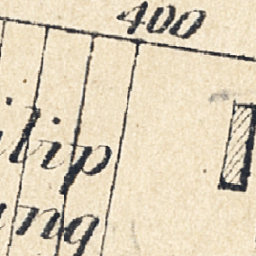 400
ilip
ung